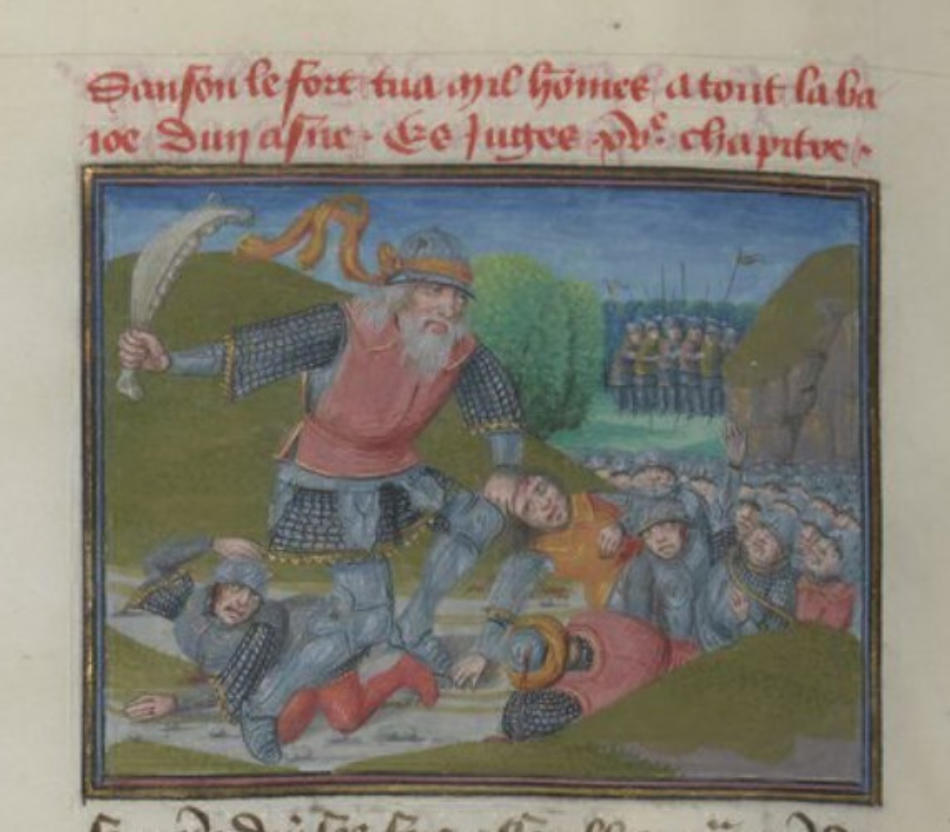 Sanson le fort tua mil hōmes a tout la ba
ioe dun asne · Es Juges xvᵉ· chapitre ·